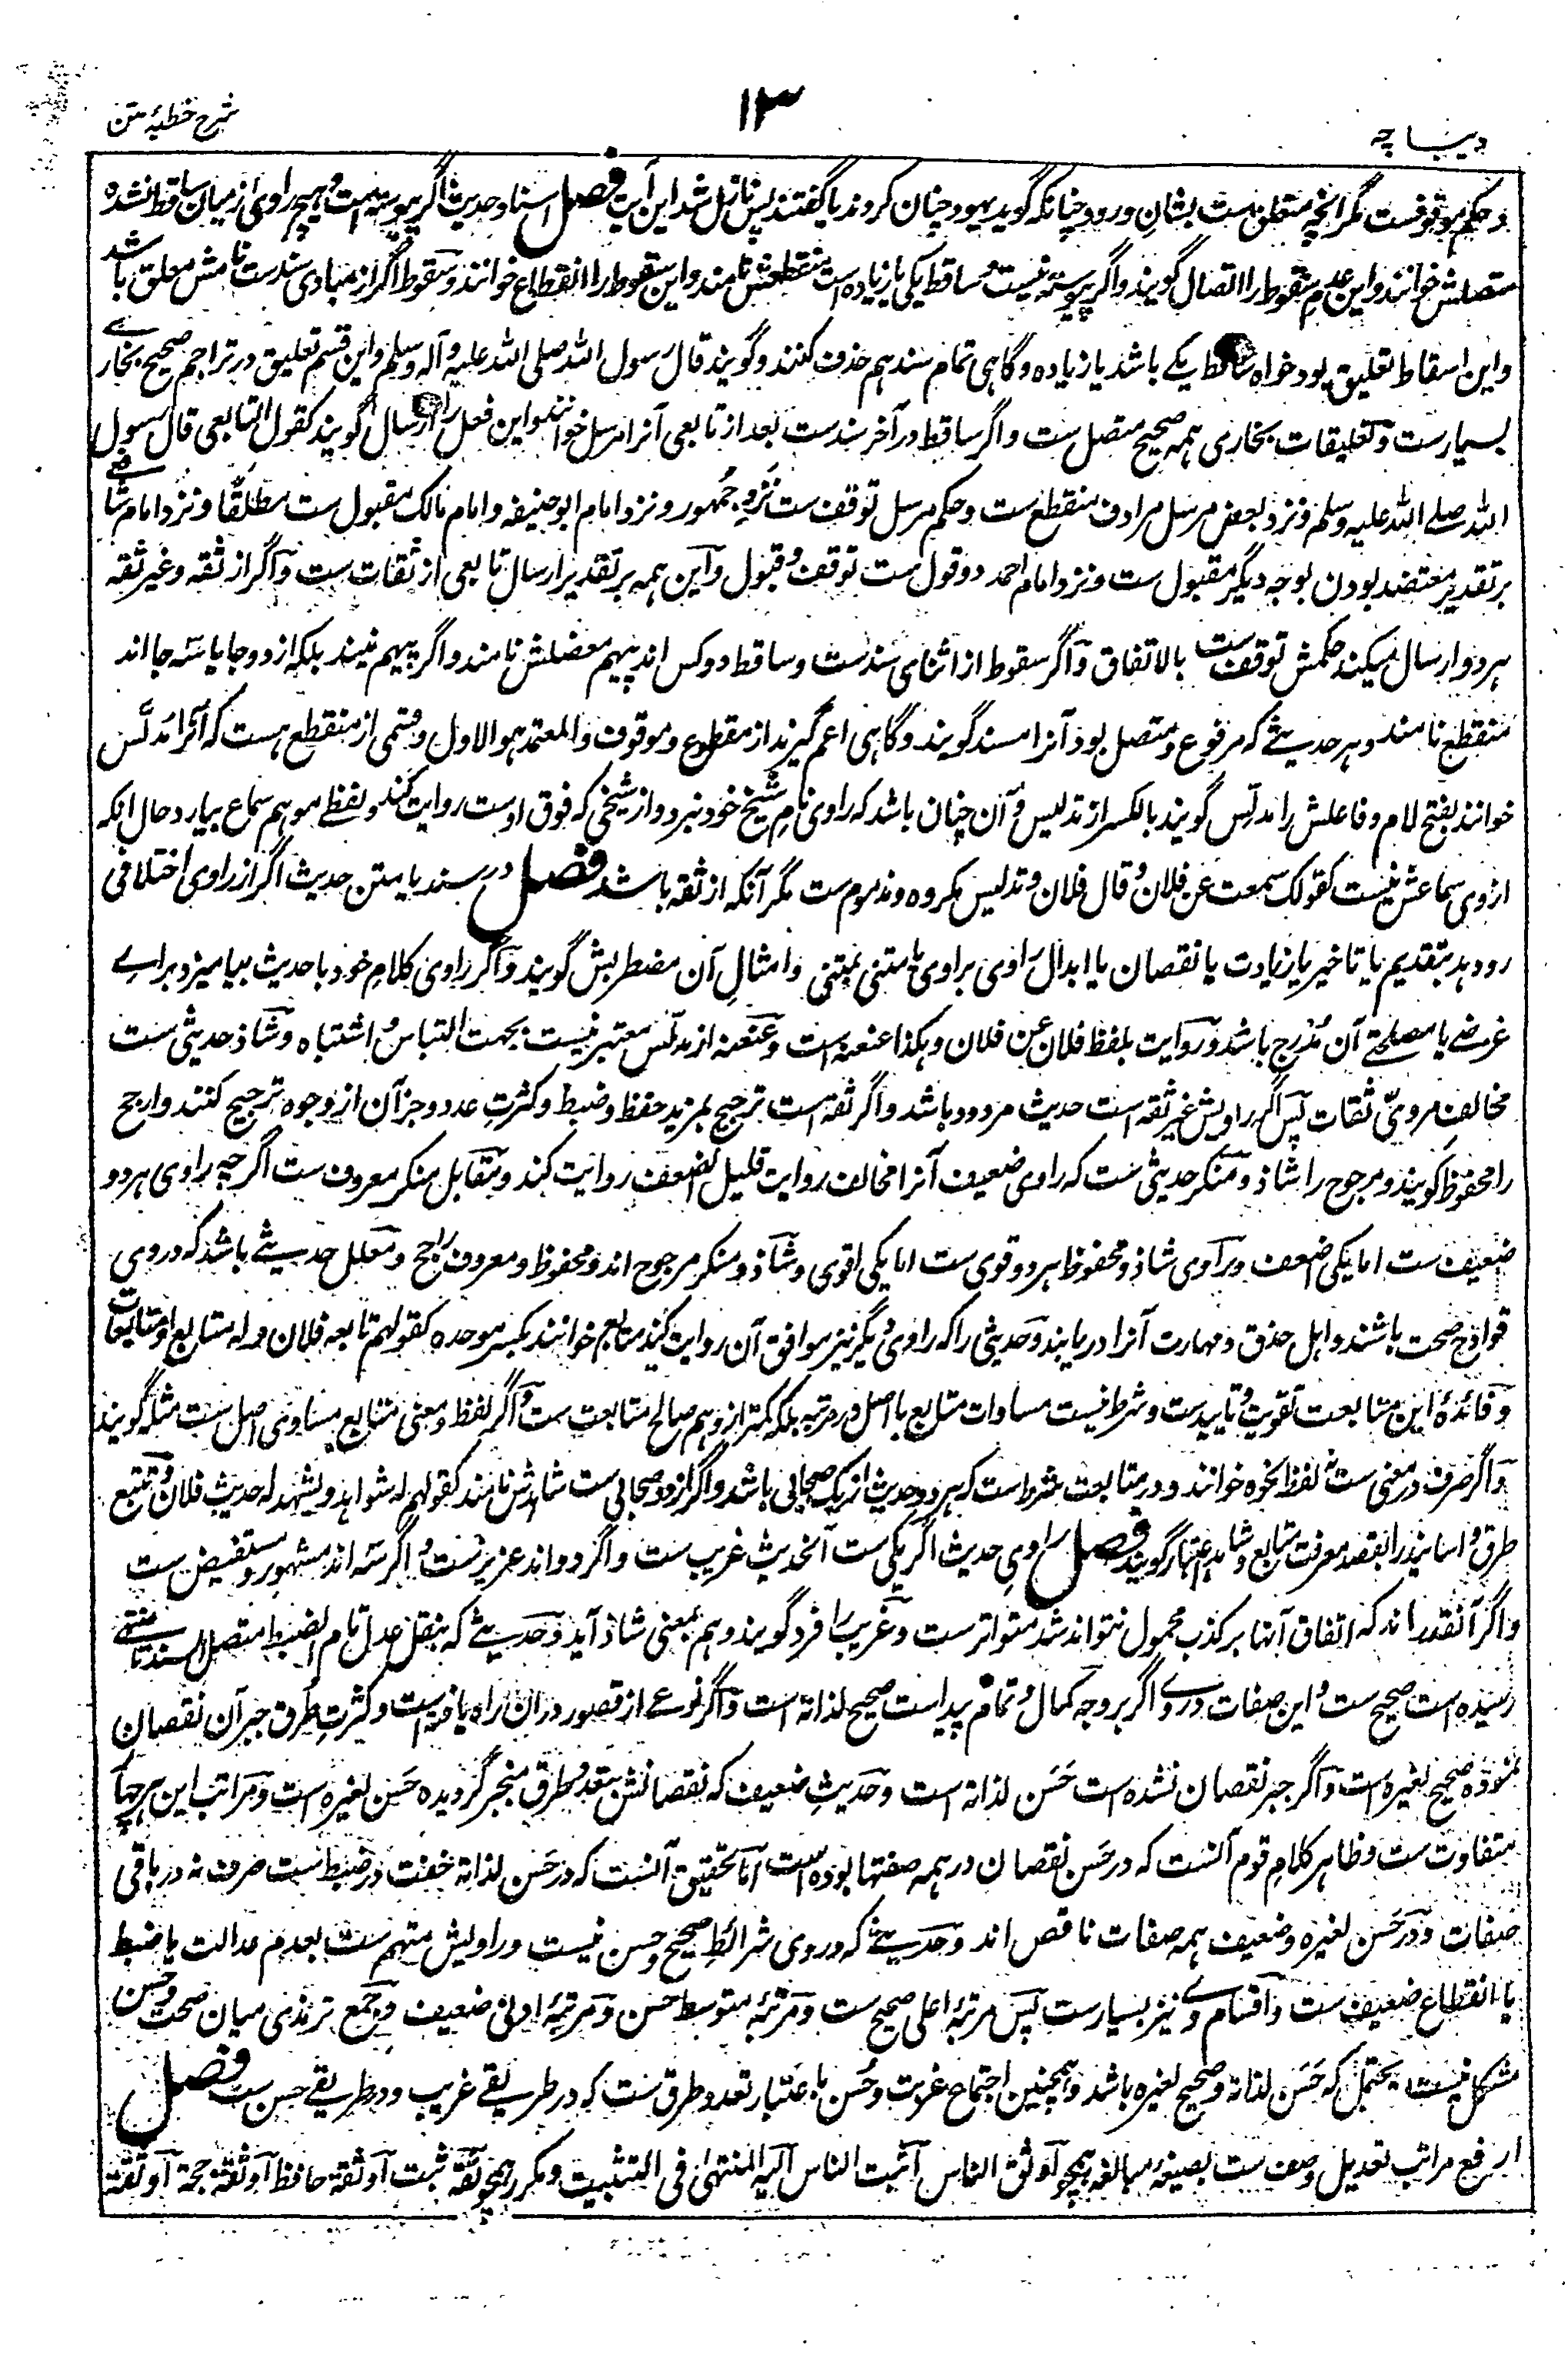 دیباچه
۱۳
شرح خطبهٔ متن
در حکم موقوفست مگر انچه متعلق ست بشانِ ورود چنانکه گوید یهود چنان کردند یا گفتند پس نازل شد این آیت فصل اسناد حدیث اگر پیوسته است و هیچ راوی از میان ساقط نشده
متصلش خوانند و این عدمِ سقوط را اتصال گویند و اگر پیوسته نیست و ساقط یکی یا زیاده است منقطعش نامند و این سقوط را انقطاع خوانند و سقوط اگر از مبادی سندست نامش معلق باشد
و این اسقاط تعلیق بود خواه ساقط یکے باشد یا زیاده و گاهی تمام سند هم حذف کنند و گویند قال رسول الله صلی الله علیه و آله وسلم و این قسم تعلیق در تراجم صحیح بخارے
بسیارست و تعلیقات بخاری همه صحیح متصل ست و اگر ساقط در آخر سندست بعد از تابعی آنرا مرسل خوانند و این فعل را ارسال گویند کقول التابعی قال رسول
الله صلے الله علیه وسلم و نزد بعض مرسل مرادف منقطع ست و حکم مرسل توقف ست نزدِ جُمهور و نزد امام ابو حنیفه و امام مالک مقبول ست مطلقًا و نزد امام شافعے
بر تقدیر معتضد بودن بوجه دیگر مقبول ست و نزد امام احمد دو قول ست توقف و قبول و این همه بر تقدیر ارسال تابعی از ثقات ست و اگر از ثقه و غیر ثقه
هر دو ارسال میکند حکمش توقف ست بالاتفاق و اگر سقوط از اثنای سندست و ساقط دو کس اند پیهم معضلش نامند و اگر پیهم نیند بلکه از دو جا یا سه جا اند
منقطع نامند و هر حدیثے که مرفوع و متصل بود آنرا مسند گویند و گاهی اعم گیرند از مقطوع و موقوف والمعتمد هو الاول و قسمی از منقطع هست که آنرا مُدلَّس
خوانند بفتح لام و فاعلش را مدلِّس گویند بالکسر از تدلیس و آن چنان باشد که راوی نامِ شیخ خود نبرد و از شیخی که فوق اوست روایت کند و لفظے موهم سماع بیارد حال انکه
ازوی سماعش نیست کقولک سمعت عن فلان و قال فلان و تدلیس مکروه و مذموم ست مگر آنکه از ثقه باشد فصل در سند یا متن حدیث اگر از راوی اختلافی
رو دهد بتقدیم یا تاخیر یا زیادت یا نقصان یا ابدال راوی براوی یا متنی بمتنی و امثالِ آن مضطربش گویند و اگر راوی کلامِ خود با حدیث بیامیزد براے
غرضے یا مصلحتے آن مُدْرج باشد و روایت بلفظ فلان عن فلان و هکذا عنعنه است و عنعنه از مدلّس معتبر نیست بجهت التباس و اشتباه و شاذ حدیثی ست
مخالف مرویّ ثقات پس اگر راویش غیر ثقه است حدیث مردود باشد و اگر ثقه است ترجیح بمزید حفظ و ضبط و کثرتِ عدد و جز آن از وجوه ترجیح کنند و ارجح
را محفوظ گویند و مرجوح را شاذ و منکر حدیثی ست که راوی ضعیف آنرا مخالف روایت قلیل الضعف روایت کند و مقابل منکر معروف ست اگر چه راوی هر دو
ضعیف ست اما یکی اضعف و راوی شاذ و محفوظ هر دو قوی ست اما یکی اقوی و شاذ و منکر مرجوح اند و محفوظ و معروف راجح و معلل حدیثے باشد که در وی
قوادح صحت باشند و اهل حذق و مهارت آنرا دریابند و حدیثی را که راوی دیگر نیز موافق آن روایت کند متابع خوانند بکسر موحده کقولهم تابعه فلان و له متابع او متابعات
و فائدهٔ این متابعت تقویت و تایید ست و شرط نیست مساوات متابع با اصل در مرتبه بلکه کمتر از وهم صالح متابعت ست و اگر لفظ و معنی متابع مساوی اصل ست مثله گویند
و اگر صرف در معنی ست نه لفظ نحوه خوانند و در متابعت شرط است که هر دو حدیث از یک صحابی باشد و اگر از دو صحابی ست شاهدش نامند کقولهم له شواهد و یشهد له حدیث فلان و تتبع
طرق و اسانید را بقصد معرفت متابع و شاهد اعتبار گویند فصل راویِ حدیث اگر یکی ست آنحدیث غریب ست و اگر دو اند عزیز ست و اگر سه اند مشهور و مستفیض ست
و اگر آنقدر اند که اتفاق آنها بر کذب محمول نتواند شد متواتر ست و غریب را فرد گویند و هم بمعنی شاذ آید و حدیثے که بنقل عدل تام الضبط متصل السند تا منتهے
رسیده است صحیح ست و این صفات در وے اگر بر وجه کمال و تمام پیداست صحیح لذاته است و اگر نوعے از قصور دران راه یافته است و کثرتِ طُرق جبر آن نقصان
نموده صحیح لغیره است و اگر جبر نقصان نشده است حَسَن لذاته است و حدیثِ ضعیف که نقصانش بتعدد طرق منجبر گردیده حَسَن لغیره است و مراتب این هر چهار
متفاوت ست و ظاهر کلامِ قوم آنست که در حَسَن نقصان در همه صفتها بوده است اما تحقیق آنست که در حَسَن لذاته خفت در ضبط ست صرف نه در باقی
صفات و در حَسَن لغیره و ضعیف همه صفات ناقص اند و حدیثے که در وی شرائطِ صحیح و حسن نیست و راویش متهم ست بعدم عدالت یا ضبط
یا انقطاع ضعیف ست و اقسام وے نیز بسیار ست پس مرتبهٔ اعلی صحیح ست و مرتبهٔ متوسط حسن و مرتبهٔ ادنی ضعیف و جمع ترمذی میان صحت و حسن
مشکل نیست یحتمل که حَسَن لذاته و صحیح لغیره باشد و همچنین اجتماع غربت و حُسن باعتبار تعدد طرق ست که در طریقے غریب و در طریقے حسن ست فصل
ارفع مراتب تعدیل وصف ست بصیغهٔ مبالغه همچو اوثق الناس اثبت الناس الیه المنتهیٰ فی التثبیت و مکرر همچو ثقة ثبت او ثقة حافظ او ثقة حجة او ثقة